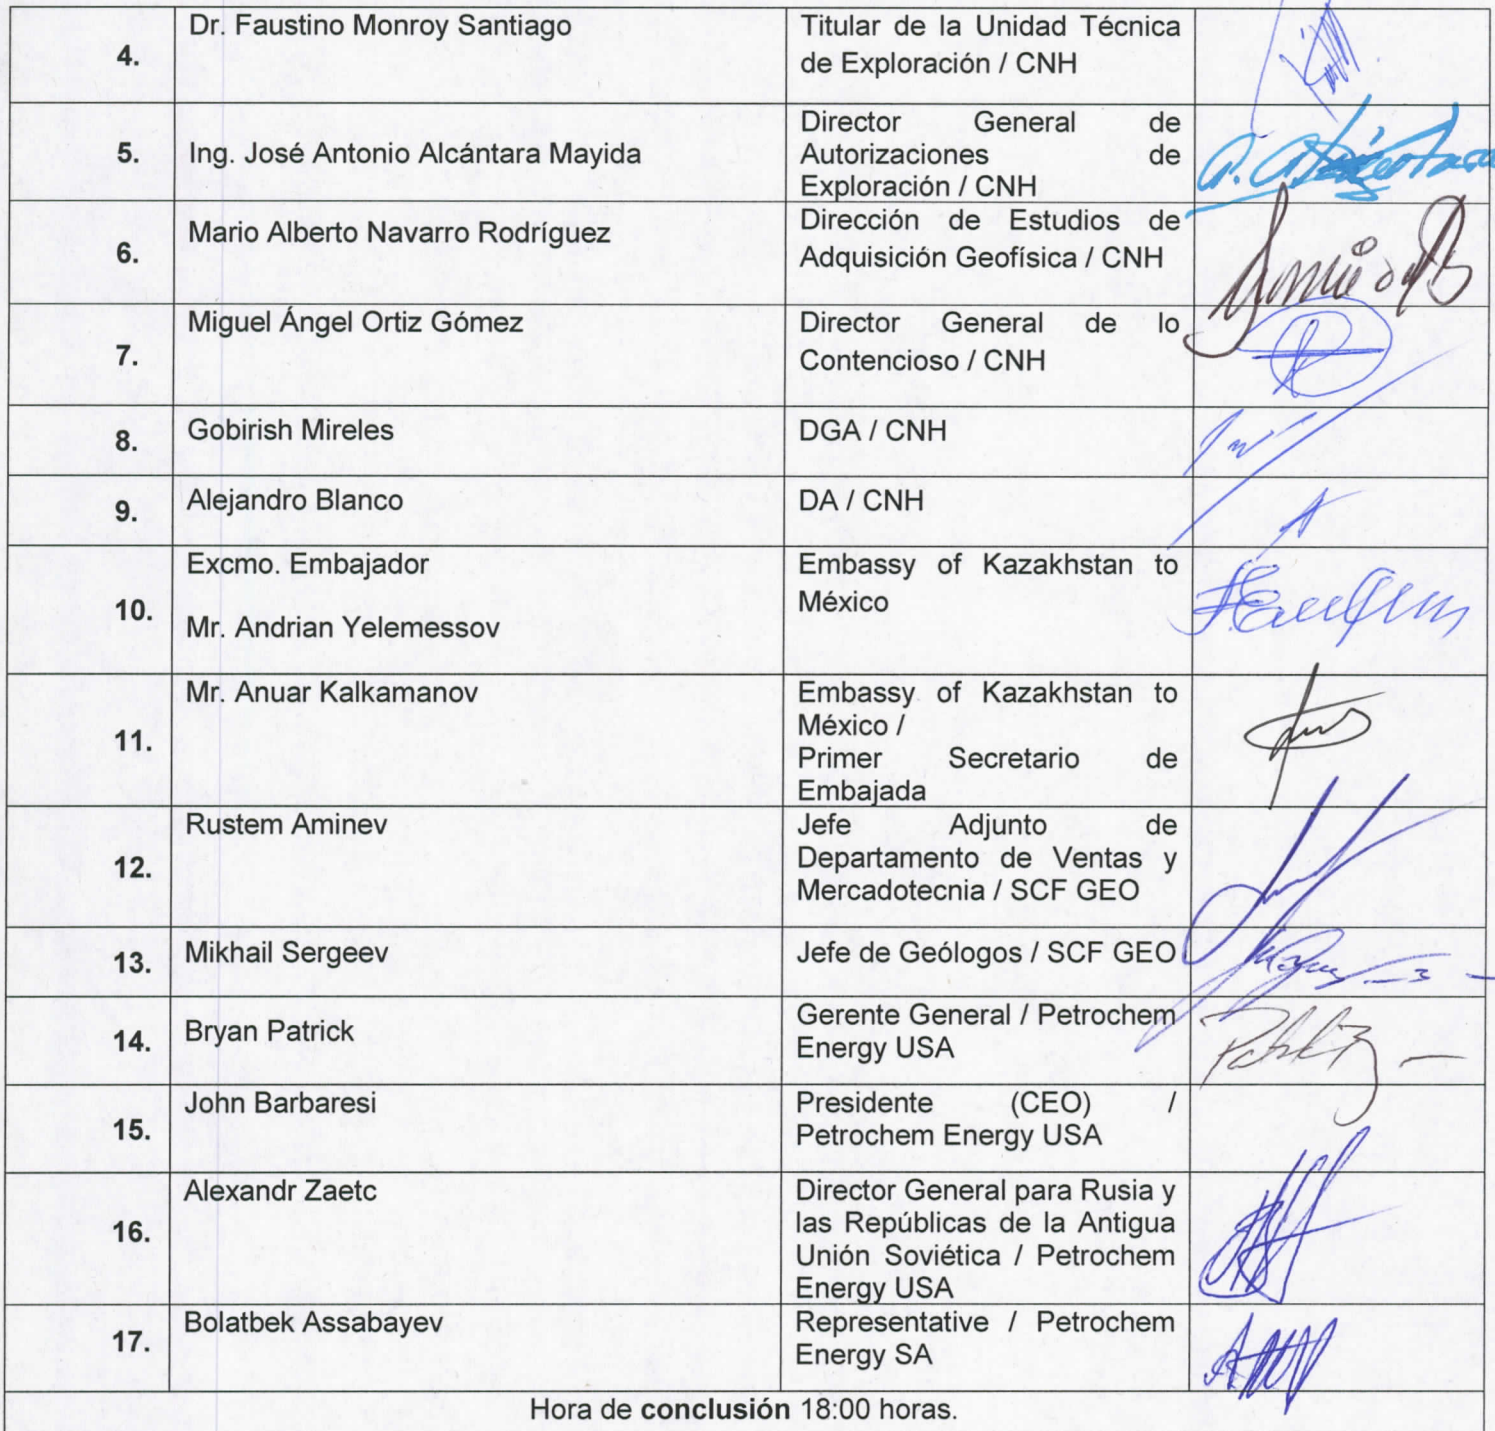 4.
Dr. Faustino Monroy Santiago
Titular de la Unidad Técnica
de Exploración / CNH
5.
Ing. José Antonio Alcántara Mayida
Director General de
Autorizaciones de
Exploración / CNH
6.
Mario Alberto Navarro Rodríguez
Dirección de Estudios de
Adquisición Geofísica / CNH
7.
Miguel Ángel Ortiz Gómez
Director General de lo
Contencioso / CNH
8.
Gobirish Mireles
DGA / CNH
9.
Alejandro Blanco
DA / CNH
10.
Excmo. Embajador
Mr. Andrian Yelemessov
Embassy of Kazakhstan to
México
11.
Mr. Anuar Kalkamanov
Embassy of Kazakhstan to
México /
Primer Secretario de
Embajada
12.
Rustem Aminev
Jefe Adjunto de
Departamento de Ventas y
Mercadotecnia / SCF GEO
13.
Mikhail Sergeev
Jefe de Geólogos / SCF GEO
14.
Bryan Patrick
Gerente General / Petrochem
Energy USA
15.
John Barbaresi
Presidente (CEO) /
Petrochem Energy USA
16.
Alexandr Zaetc
Director General para Rusia y
las Repúblicas de la Antigua
Unión Soviética / Petrochem
Energy USA
17.
Bolatbek Assabayev
Representative / Petrochem
Energy SA
Hora de conclusión 18:00 horas.